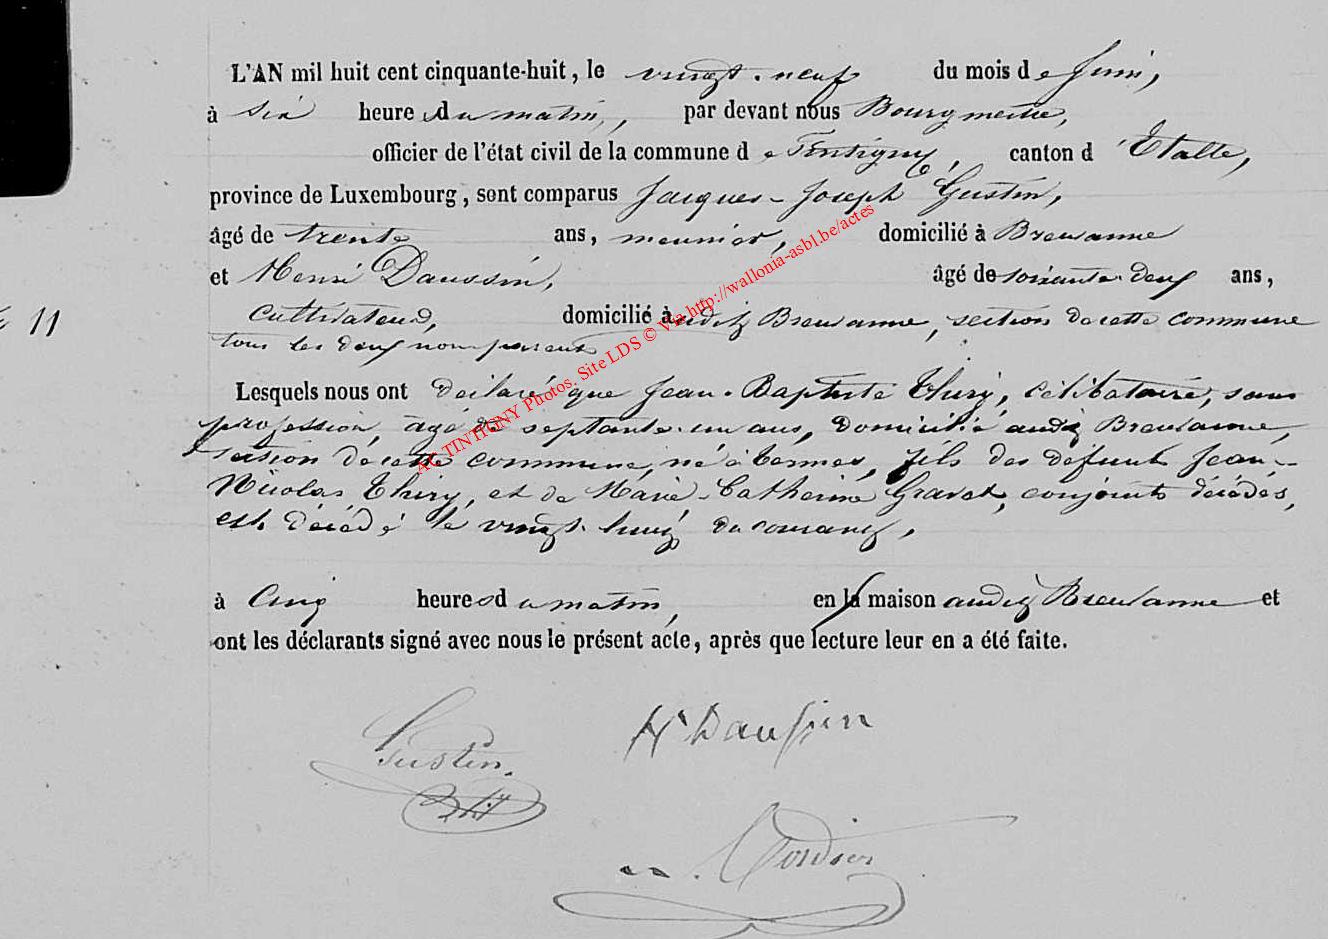 L'AN mil huit cent cinquante-huit, le vingt-neuf du mois de Juin,
à six heures du matin, par devant nous Bourgmestre,
officier de l'état civil de la commune de Tintigny, canton d'Etalle,
province de Luxembourg, sont comparus Jacques-Joseph Gustin,
âgé de trente ans, meunier, domicilié à Breuvanne
et Henri Daussin, âgé de soixante-deux ans,
11 cultivateur, domicilié audit Breuvanne, section de cette commune
tous les deux non parents
Lesquels nous ont déclaré que Jean-Baptiste Thiry, célibataire, sans
profession, âgé de septante-un ans, domicilié audit Breuvanne,
section de cette commune, né à Termes, fils des défunts Jean-
Nicolas Thiry, et de Marie-Catherine Gravet, conjoints décédés,
est décédé le vingt-huit du courant,
à cinq heures du matin, en la maison audit Breuvanne et
ont les déclarants signé avec nous le présent acte, après que lecture leur en a été faite.
Gustin H Daussin
AC TINTIGNY Photos. Site LDS © Via http://wallonia-asbl.be/actes